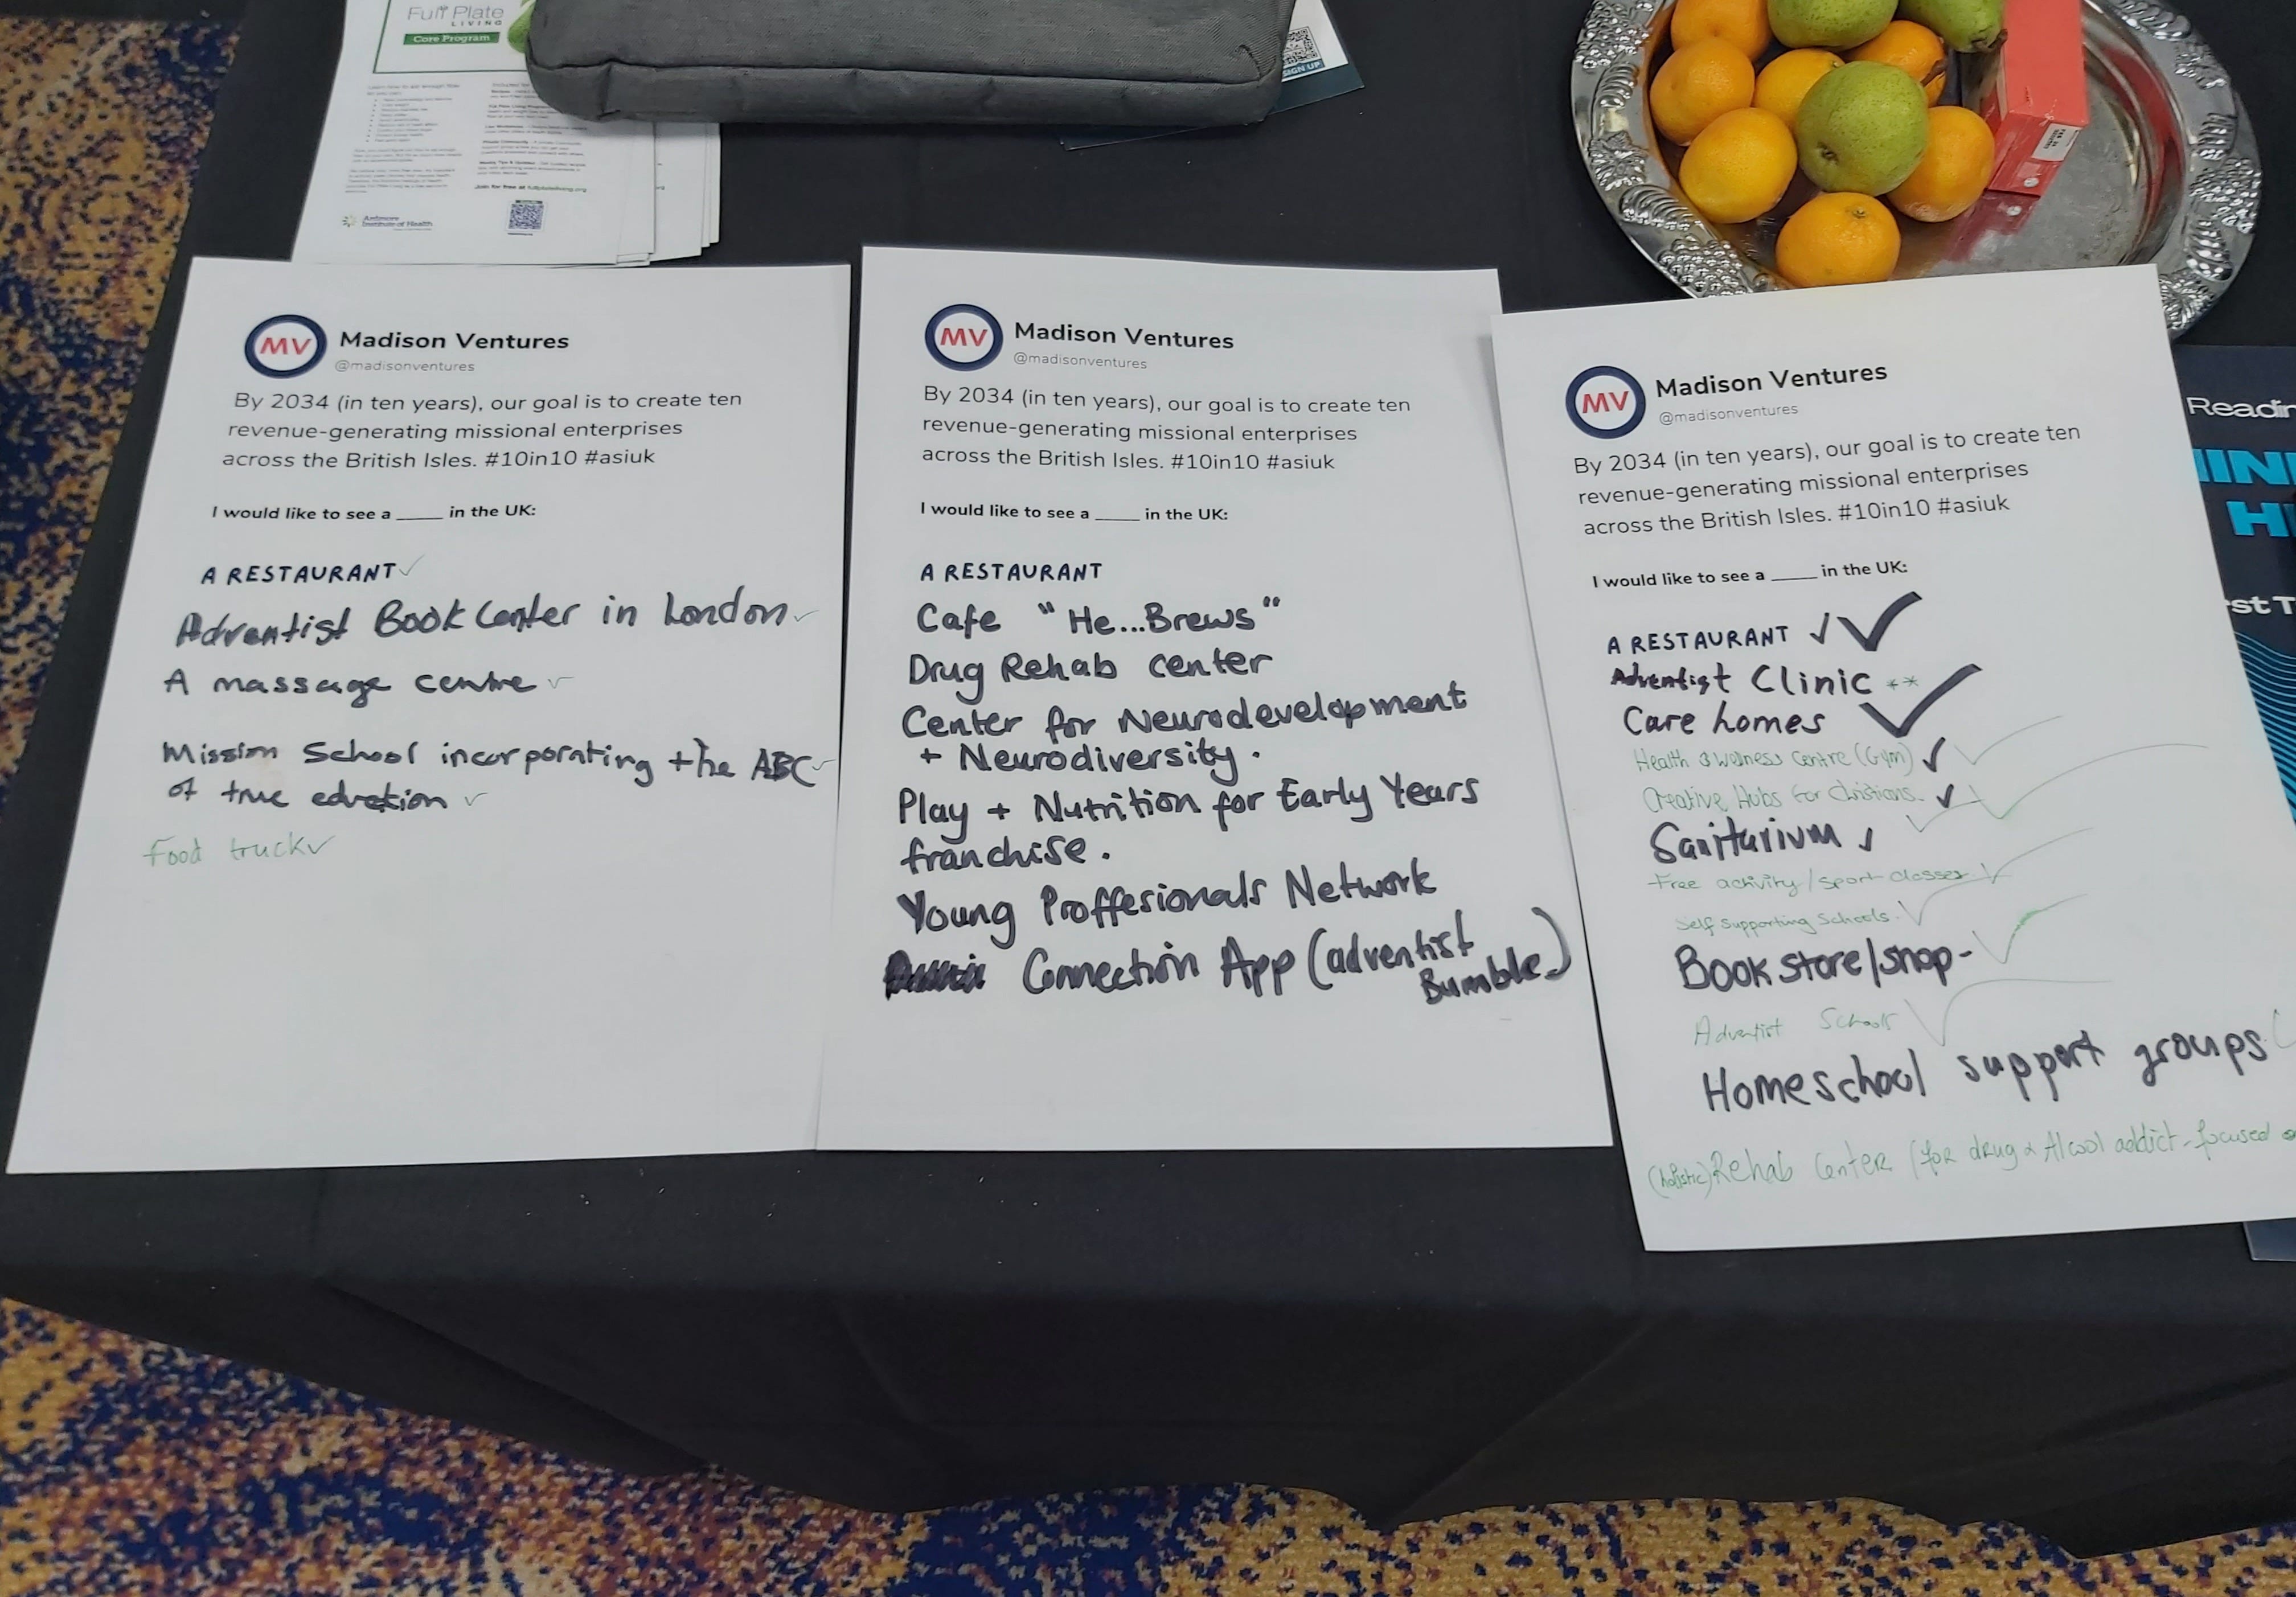 Full Plate
LIVING
Core Program
Join for free at fullplateliving.org
Ardmore
Institute of Health
SIGN UP
MV
Madison Ventures
@madisonventures
By 2034 (in ten years), our goal is to create ten
revenue-generating missional enterprises
across the British Isles. #10in10 #asiuk
I would like to see a _____ in the UK:
A RESTAURANT ✓
Adventist Book Center in London ✓
A massage centre ✓
Mission School incorporating the ABC ✓
of true education ✓
Food truck ✓
MV
Madison Ventures
@madisonventures
By 2034 (in ten years), our goal is to create ten
revenue-generating missional enterprises
across the British Isles. #10in10 #asiuk
I would like to see a _____ in the UK:
A RESTAURANT
Cafe "He...Brews"
Drug Rehab center
Center for Neurodevelopment
+ Neurodiversity.
Play + Nutrition for Early Years
franchise.
Young Proffesionals Network
Connection App (adventist
Bumble)
MV
Madison Ventures
@madisonventures
By 2034 (in ten years), our goal is to create ten
revenue-generating missional enterprises
across the British Isles. #10in10 #asiuk
I would like to see a _____ in the UK:
A RESTAURANT ✓ ✓
Adventist Clinic **
Care homes ✓
Health & Wellness Centre (Gym) ✓ ✓
Creative Hubs for Christians. ✓ ✓
Sanitarium ✓ ✓
Free activity/sport classes ✓
Self Supporting Schools. ✓
Book store/shop- ✓
Adventist Schools ✓
Homeschool support groups
(holistic) Rehab Center (for drug & Alcool addict-focused